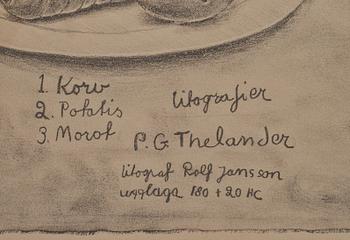 1. Korv
2. Potatis
3. Morot
litografier
P.G Thelander
litograf Rolf Jansson
upplaga 180 + 20 HC